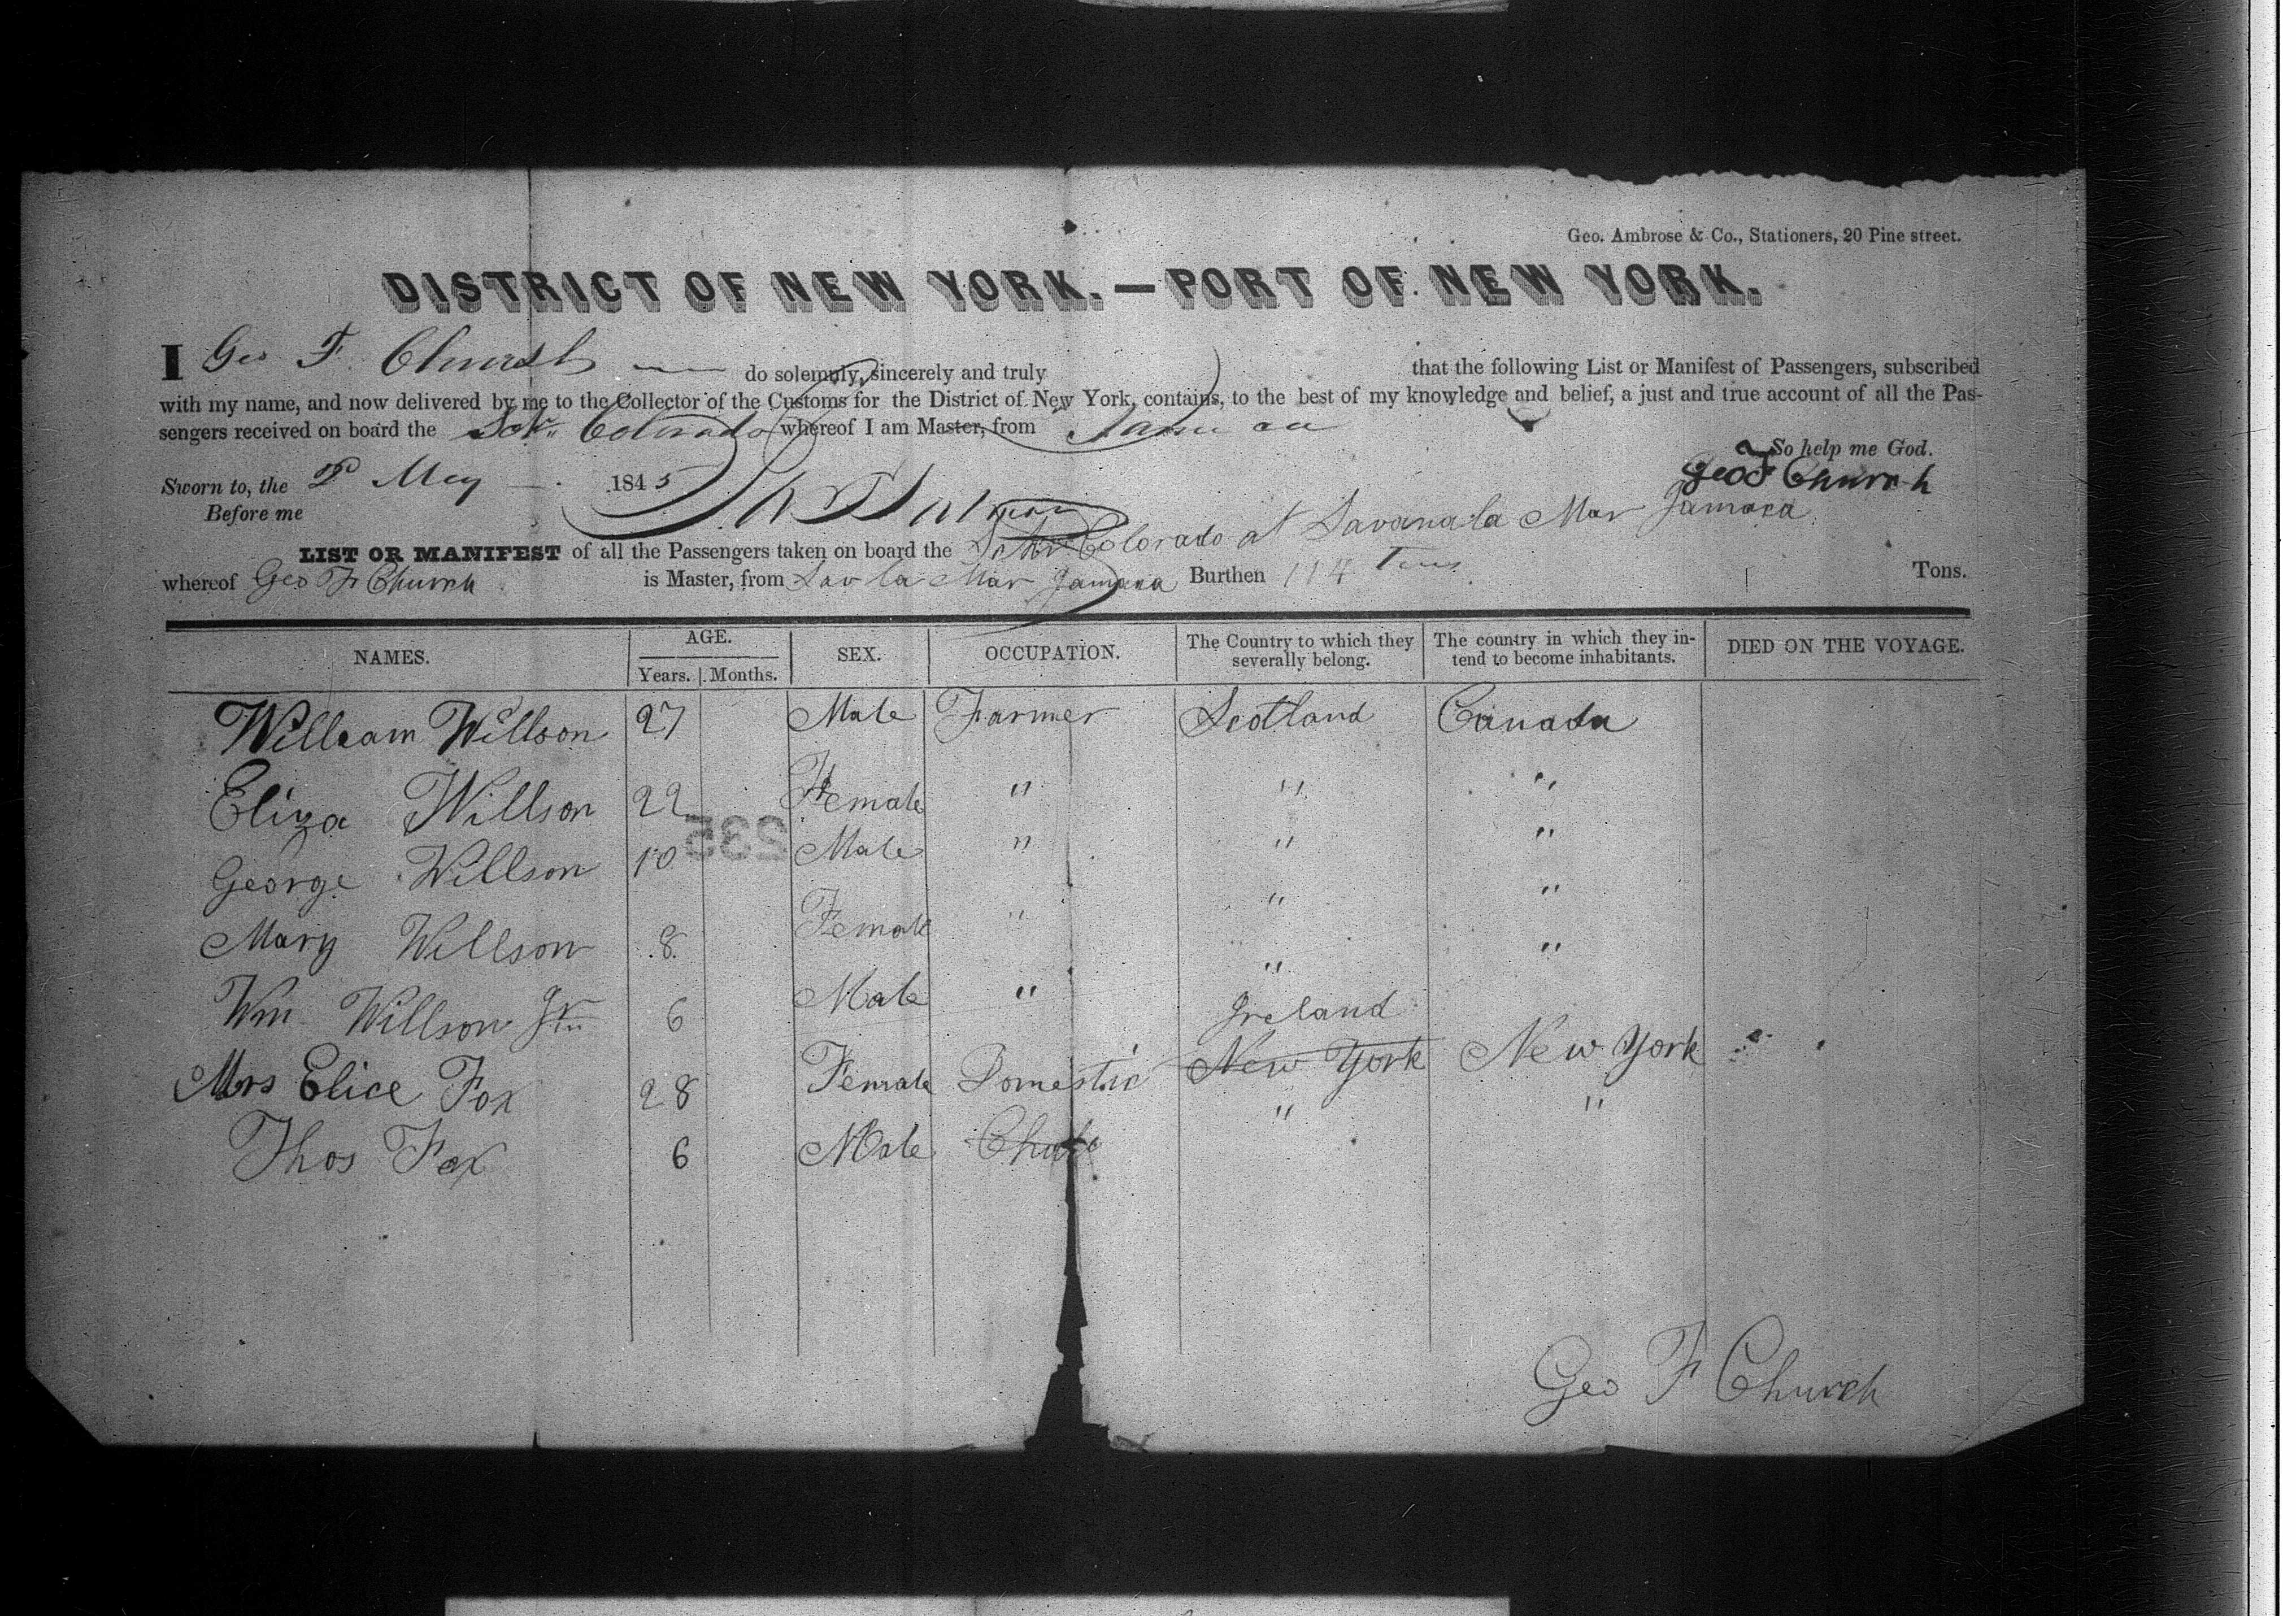 Geo. Ambrose & Co., Stationers, 20 Pine street.
DISTRICT OF NEW YORK.—PORT OF NEW YORK.
I Geo F. Church do solemnly, sincerely and truly that the following List or Manifest of Passengers, subscribed
with my name, and now delivered by me to the Collector of the Customs for the District of New York, contains, to the best of my knowledge and belief, a just and true account of all the Pas-
sengers received on board the Schr Colorado whereof I am Master, from
So help me God.
Sworn to, the 2d May 1845 Geo F Church
Before me
LIST OR MANIFEST of all the Passengers taken on board the Schr Colorado at Savanala Mar Jamaca
whereof Geo F Church is Master, from Sav la Mar Jamaca Burthen 114 Tons Tons.
NAMES. AGE. SEX. OCCUPATION. The Country to which they severally belong. The country in which they in-tend to become inhabitants. DIED ON THE VOYAGE.
Years. Months.
William Willson 27 Male Farmer Scotland Canada
Eliza Willson 22 Female " " "
George Willson 10 Male " " "
235
Mary Willson 8 Female " " "
Wm Willson Jr 6 Male " " "
Ireland
Mrs Elice Fox 28 Female Domestic New York New York
Thos Fox 6 Male " "
Geo F Church